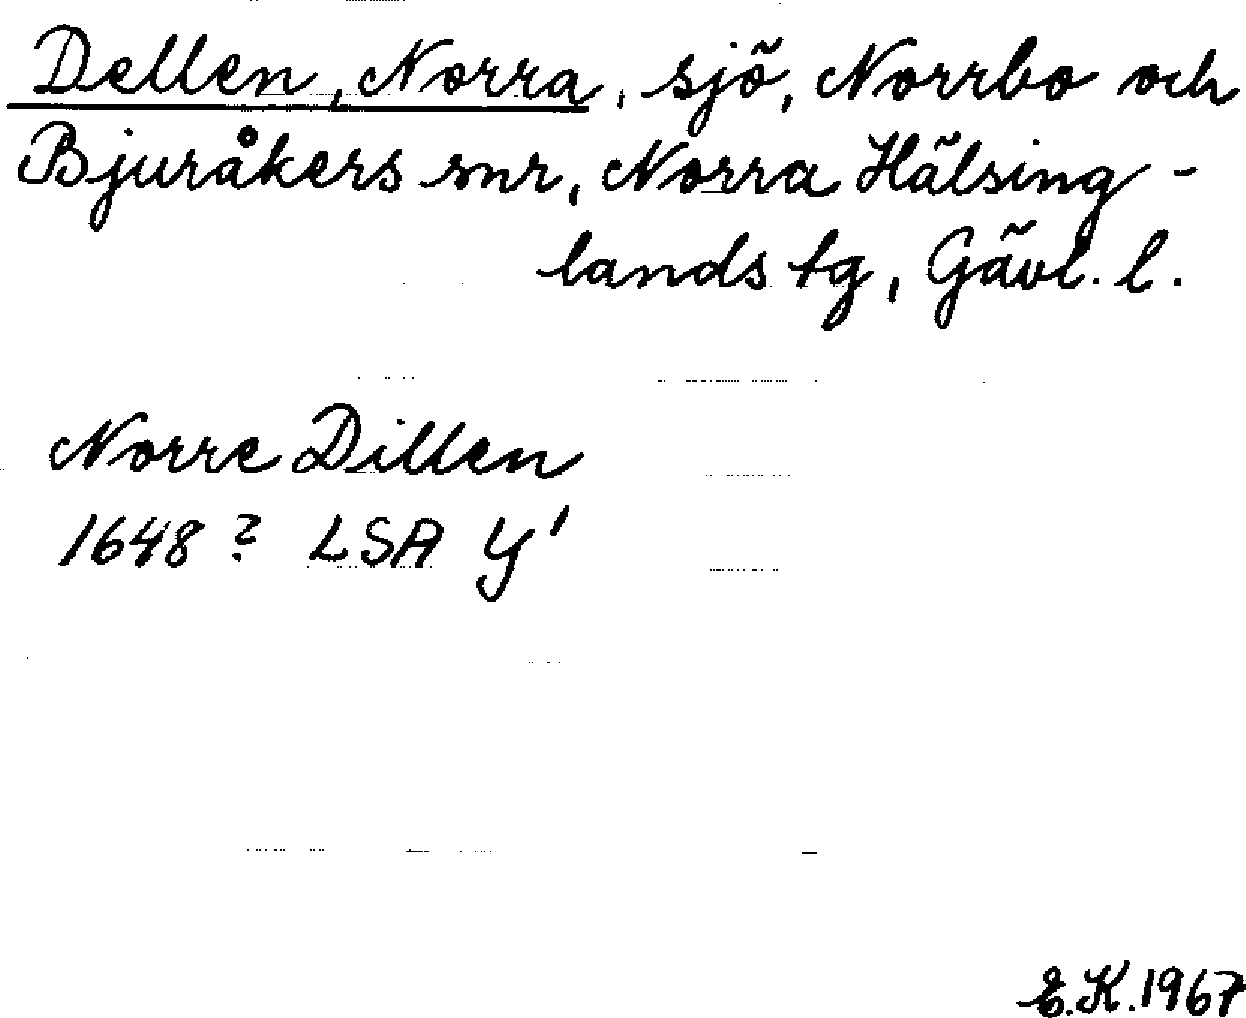 Dellen, Norra, sjö, Norrbo och
Bjuråkers snr, Norra Hälsing-
lands tg, Gävl. l.
Norre Dillen
1648? LSA Y1
E.K. 1967